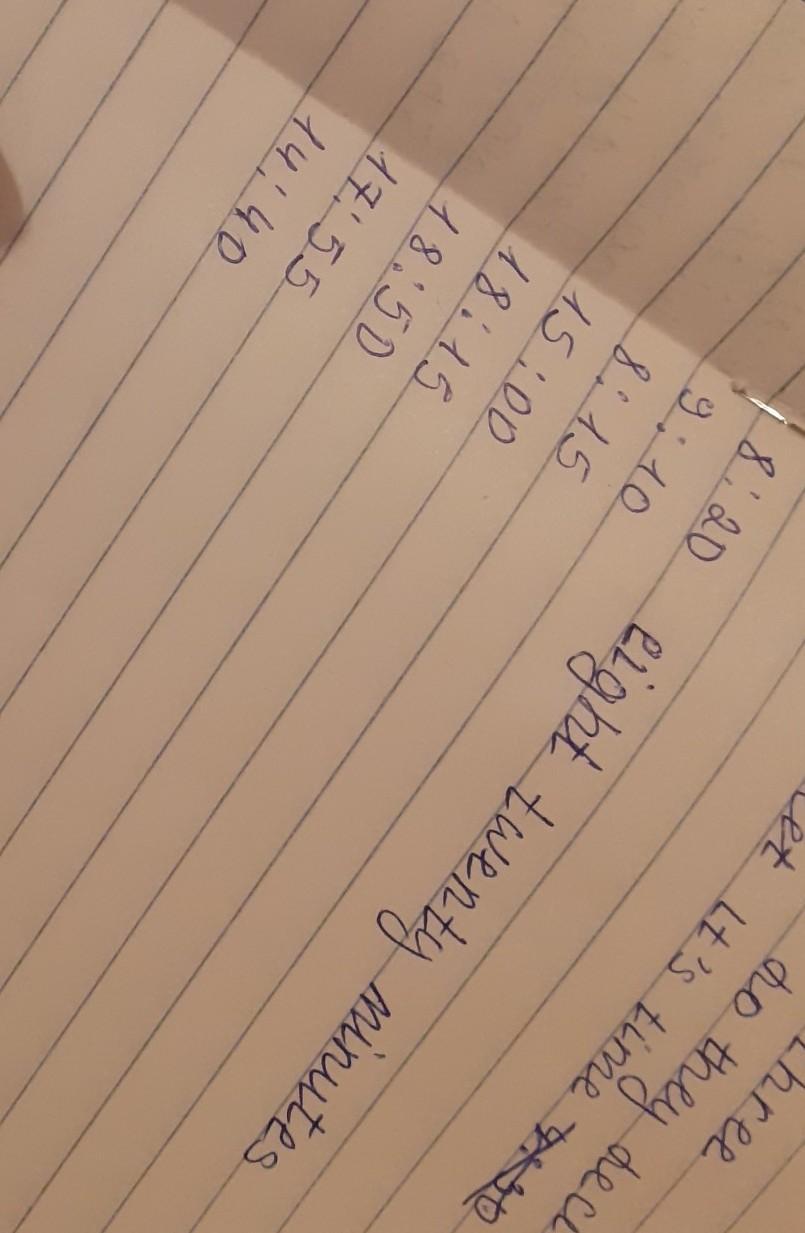 three
do they
It's time
8:20 eight twenty minutes
9:10
8:15
15:00
18:15
18:50
17:55
14:40